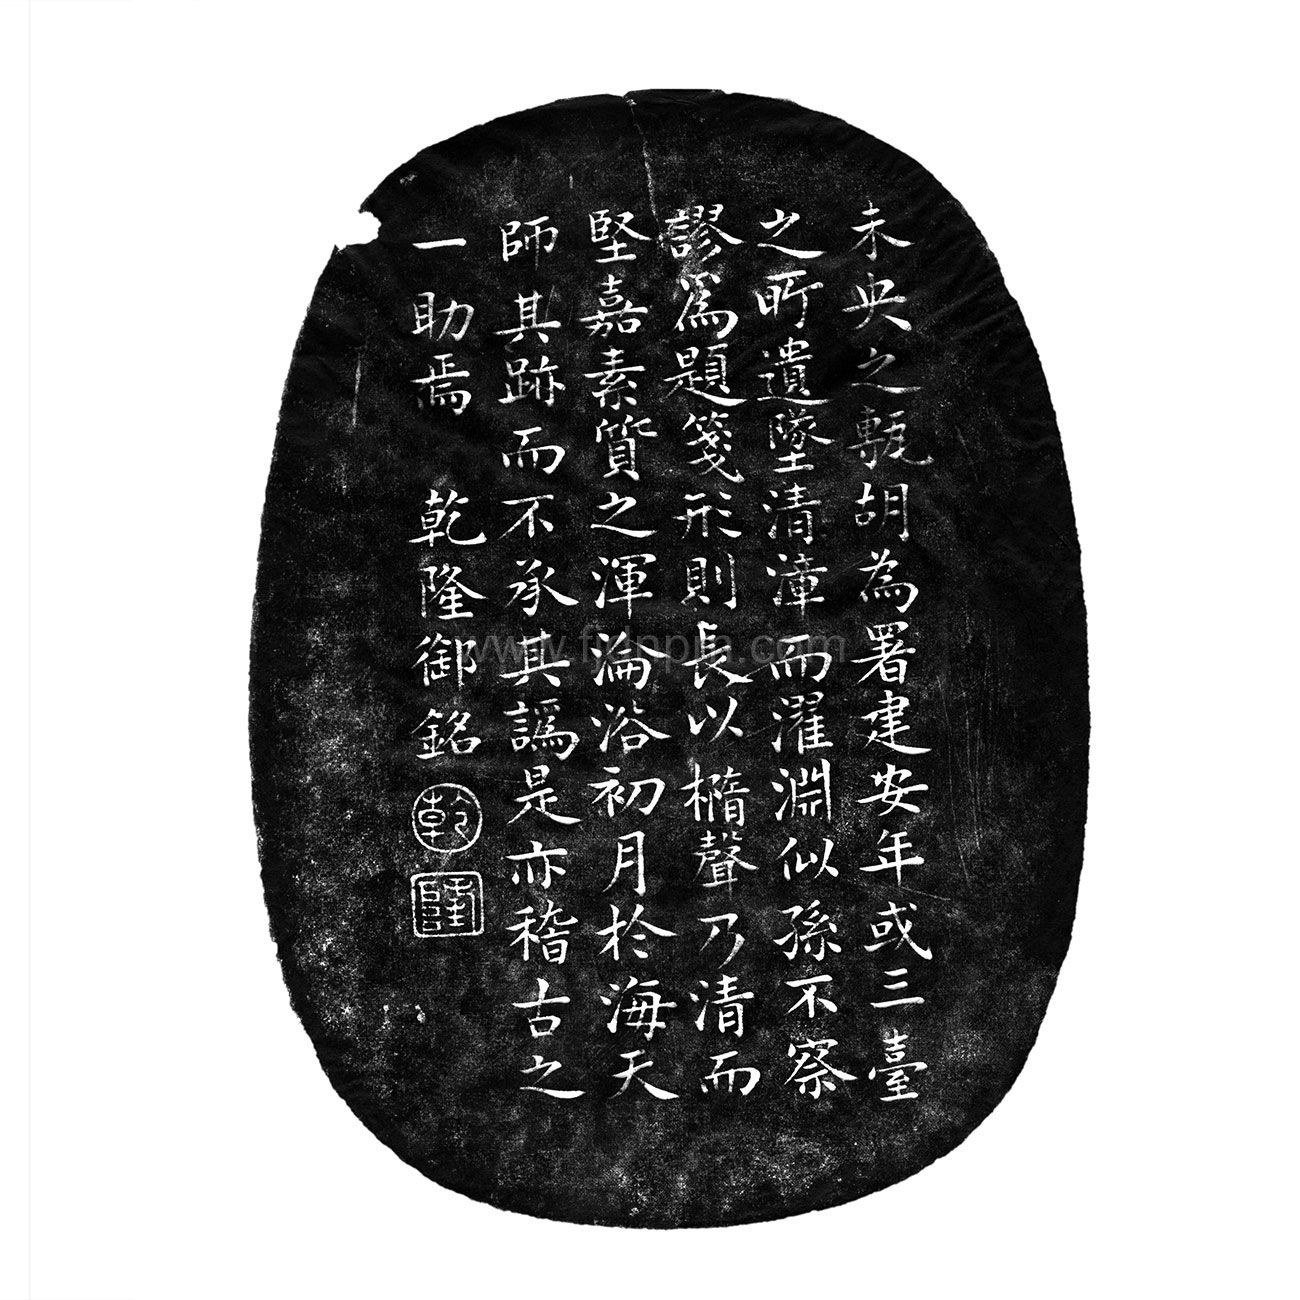 未央之甎胡為署建安年或三臺
之所遺墜清漳而濯淵似孫不察
謬為題箋形則長以橢聲乃清而
堅嘉素質之渾淪浴初月於海天
師其跡而不承其譌是亦稽古之
一助焉 乾隆御銘
乾
隆
www.fjdnpm.com